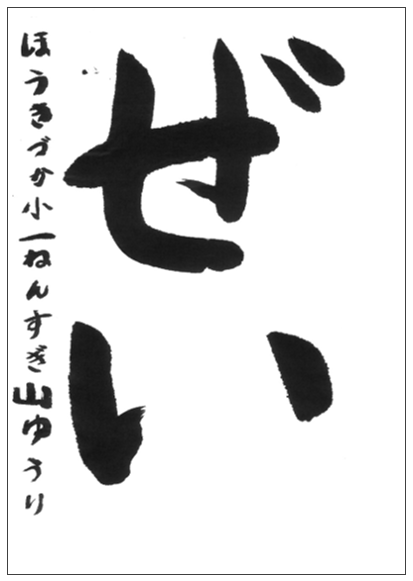 ぜい
ほうきづか小一ねんすぎ山ゆうり